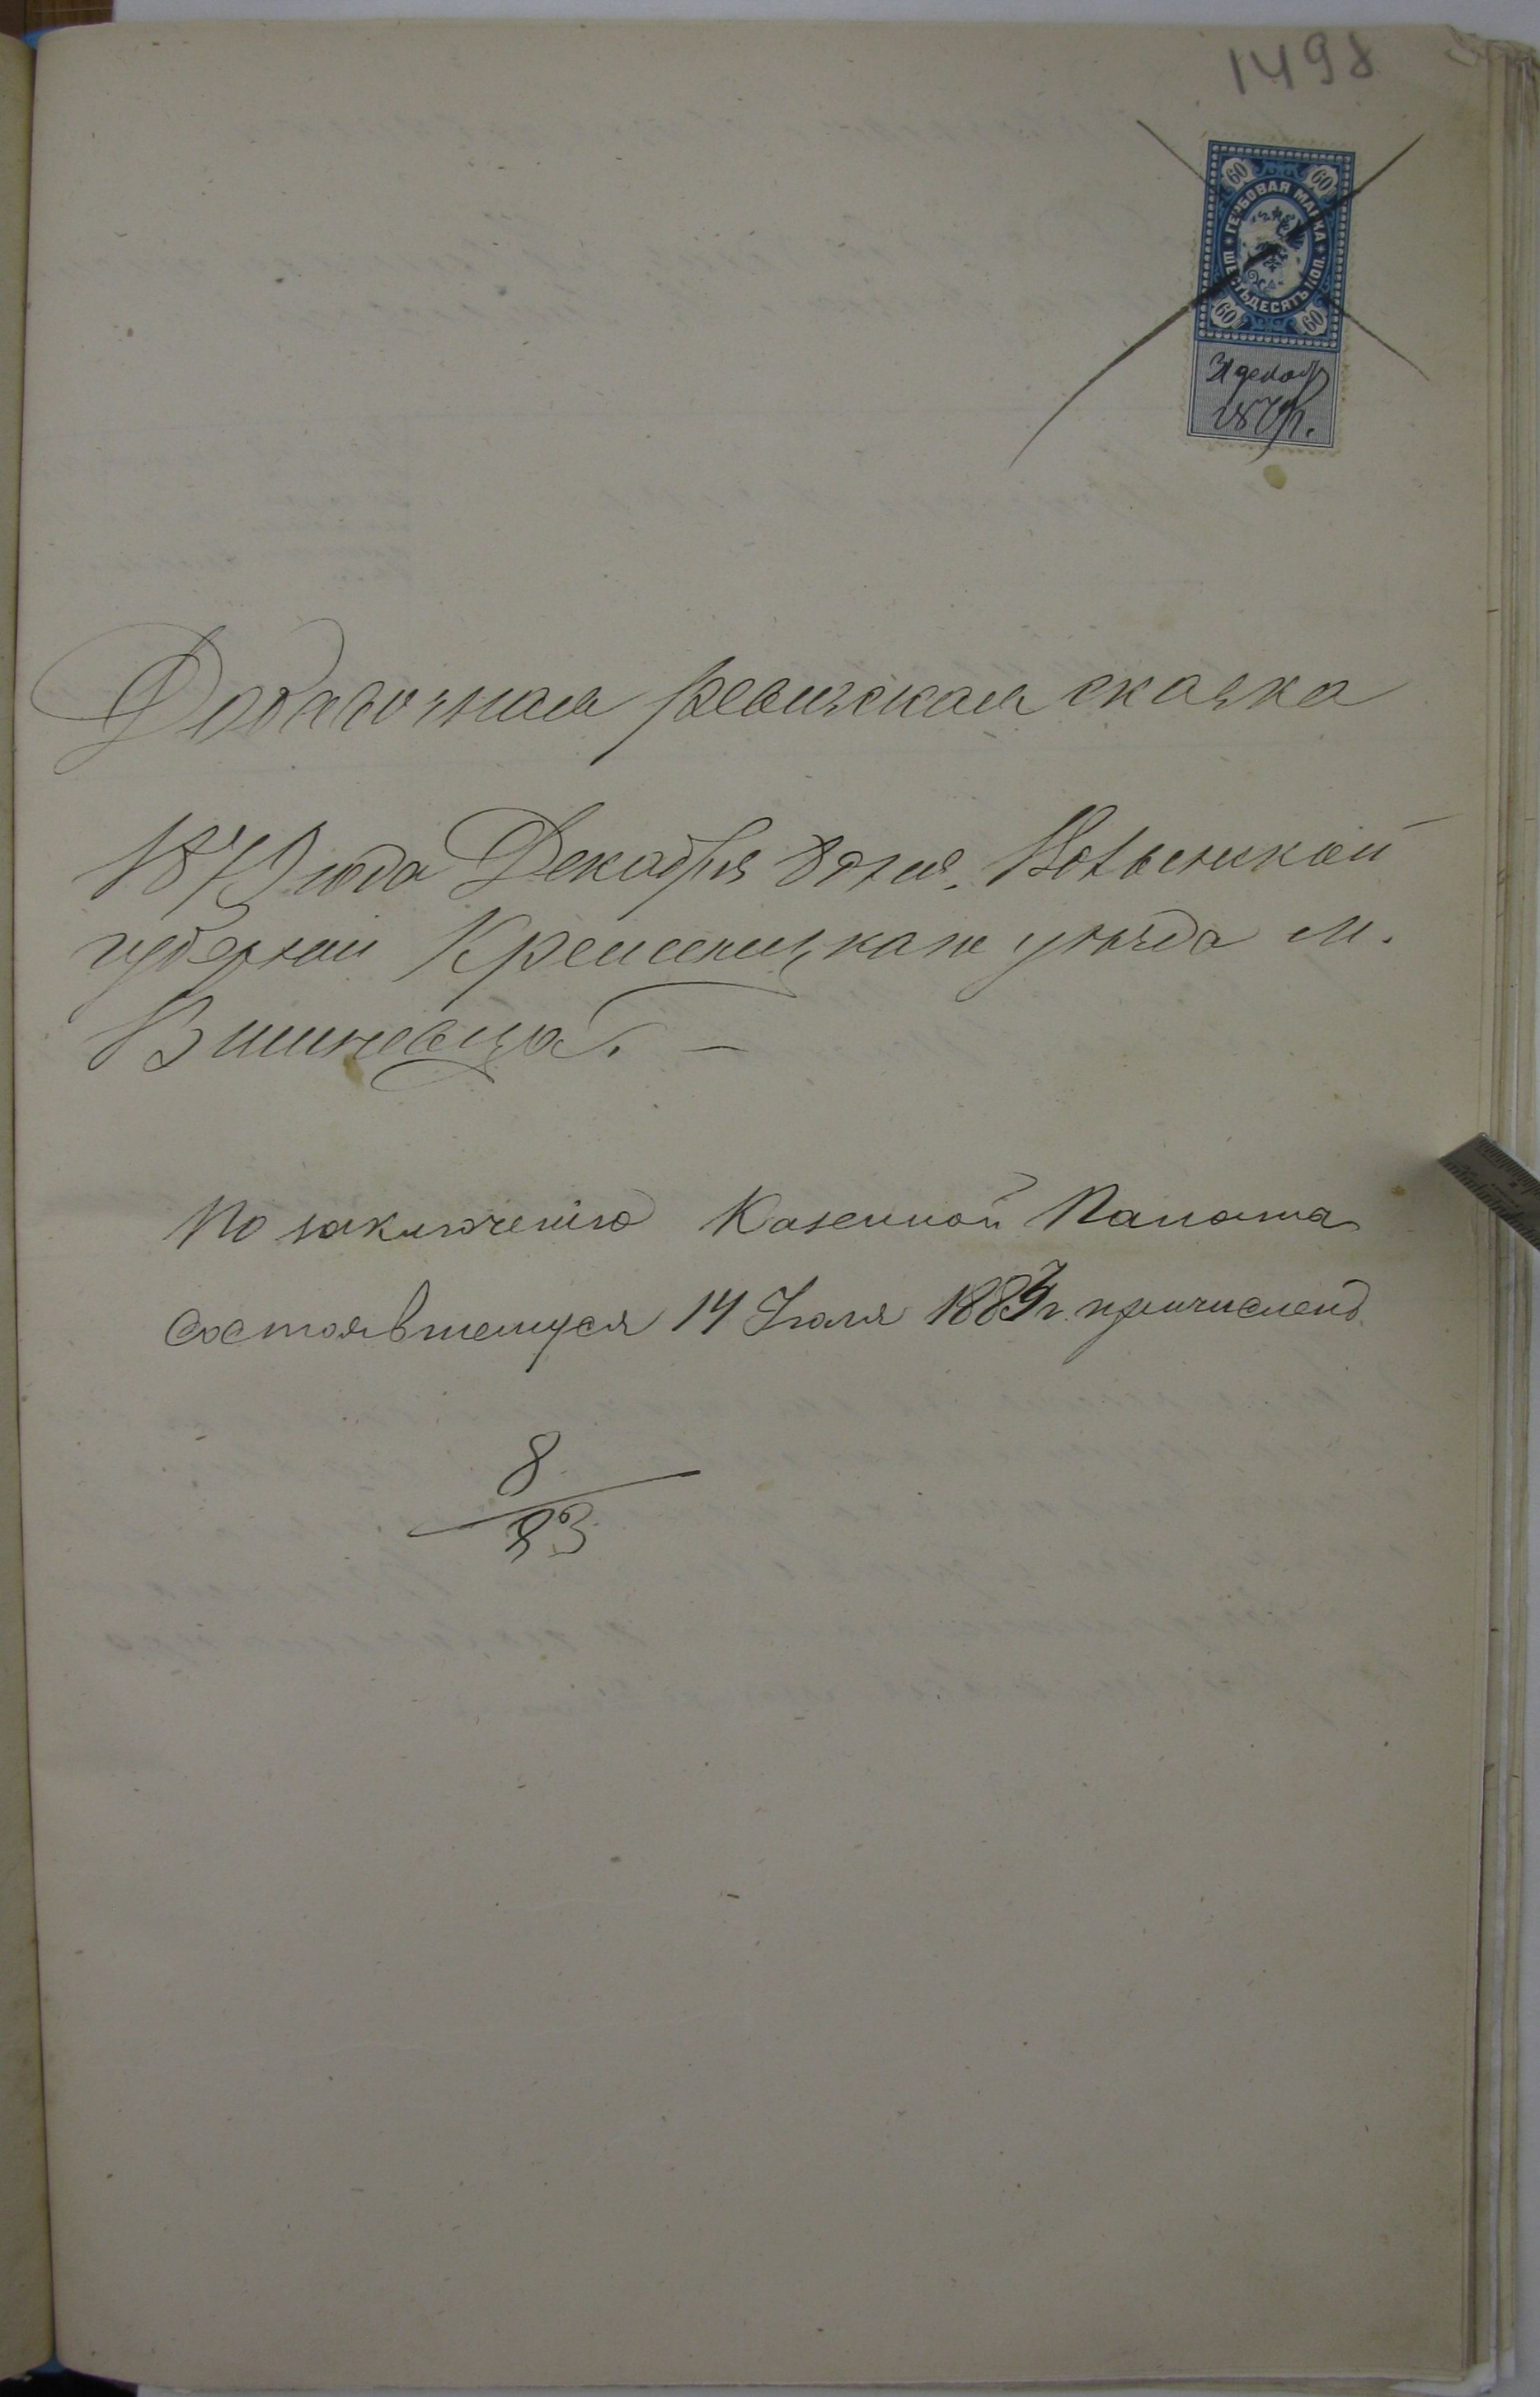 1498
60 60
ГЕРБОВАЯ МАРКА
ШЕСТЬДЕСЯТЪ КОП.
60 60
31 декаб
1879.
Добавочная ревизская сказка
1879 года Декабря 8 дня. Волынской
губернии Кременецкаго уѣзда м.
Вишневца. —
По заключенію Казенной Палаты
состоявшемуся 14 Іюля 188 г. причислено
8
83